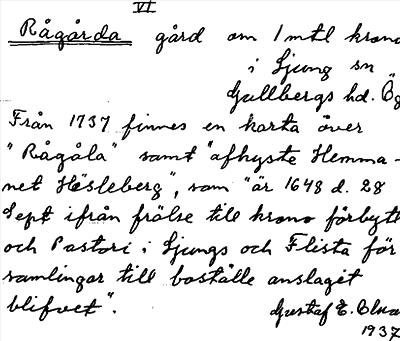 VI
Rågårda gård om 1 mtl krono
i Ljung sn
Gullbergs hd. Ög
Från 1737 finnes en karta över
"Rågåla" samt "afhyste Hemma-
net Hösleberg", som "år 1648 d. 28
Sept ifrån frälse till krono förbytt
och Pastori i Ljungs och Flista för
samlingar till boställe anslagit
blifvet".
Gustaf E.
1937